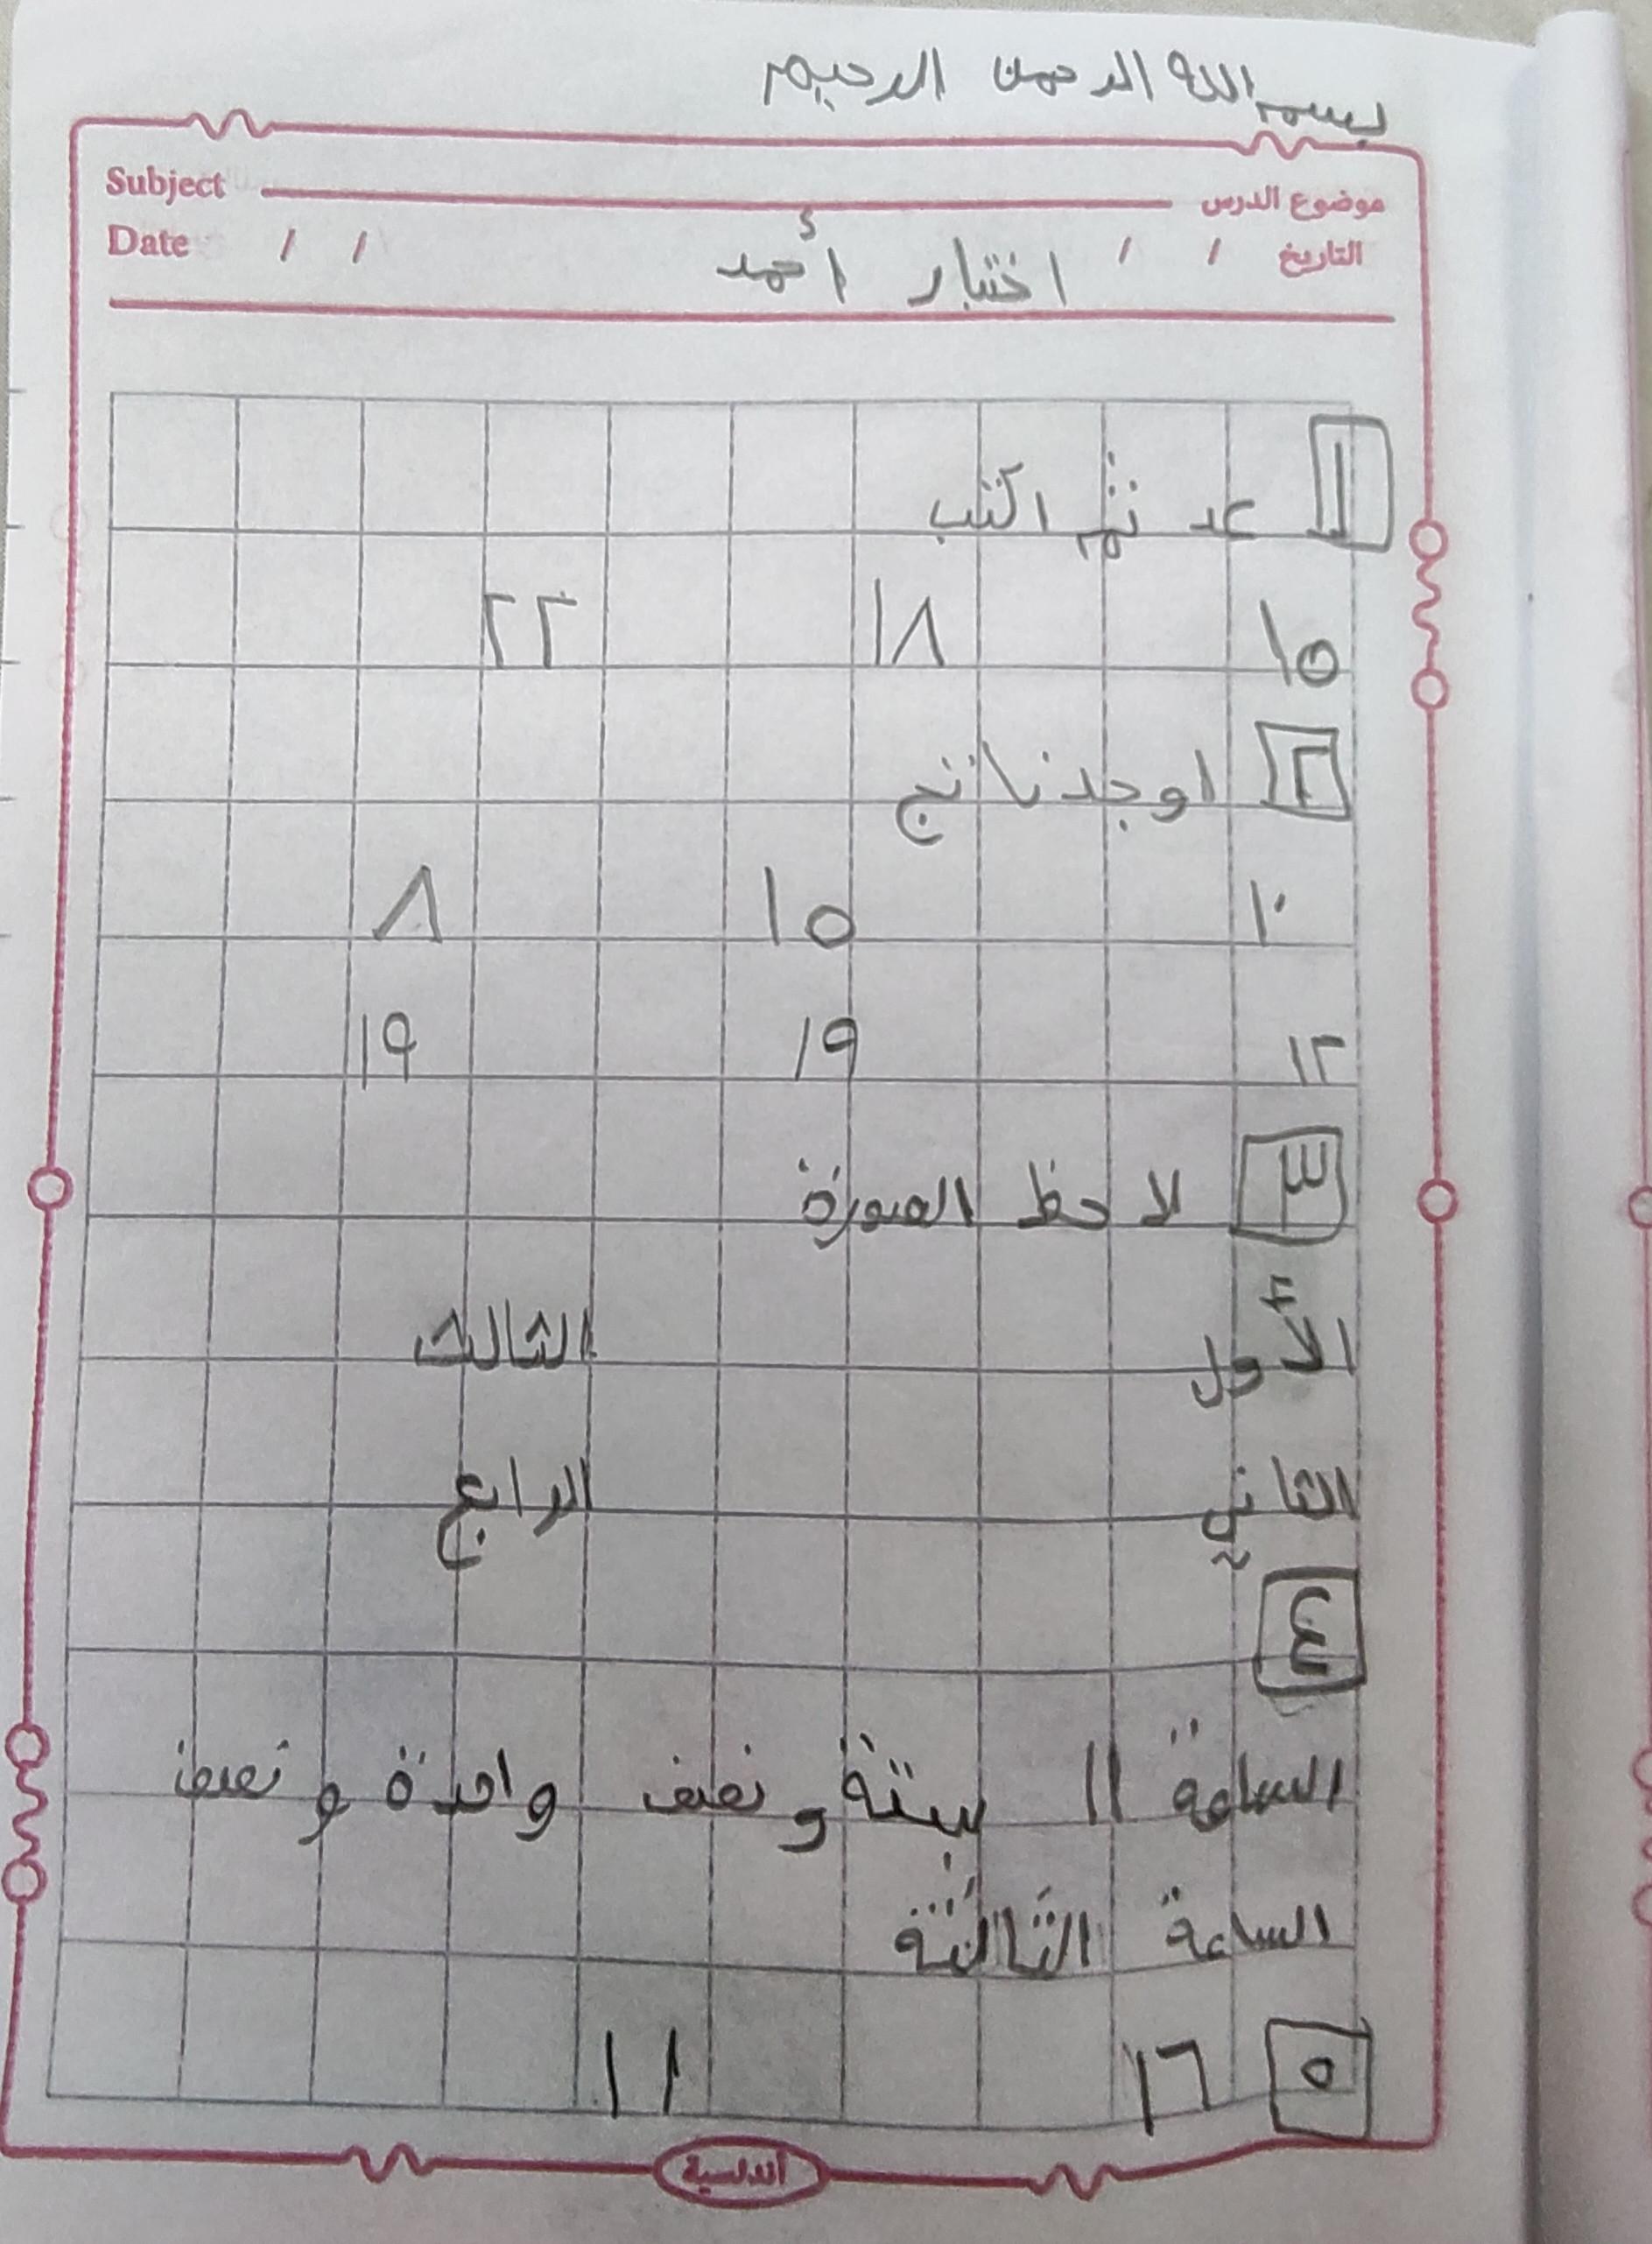 بسم الله الرحمن الرحيم
Subject موضوع الدرس
Date / / التاريخ / /
اختبار أحمد
١ عد ثم اكتب
١٥ ١٨ ٢٢
٢ اوجد ناتج
١٠ ١٥ ٨
١٢ ١٩ ١٩
٣ لاحظ الصورة
الأول الثالث
الثاني الرابع
٤
الساعة ١١ ستة ونصف واحدة ونصف
الساعة الثالثة
٥ ١٦ ١١
أندلسية